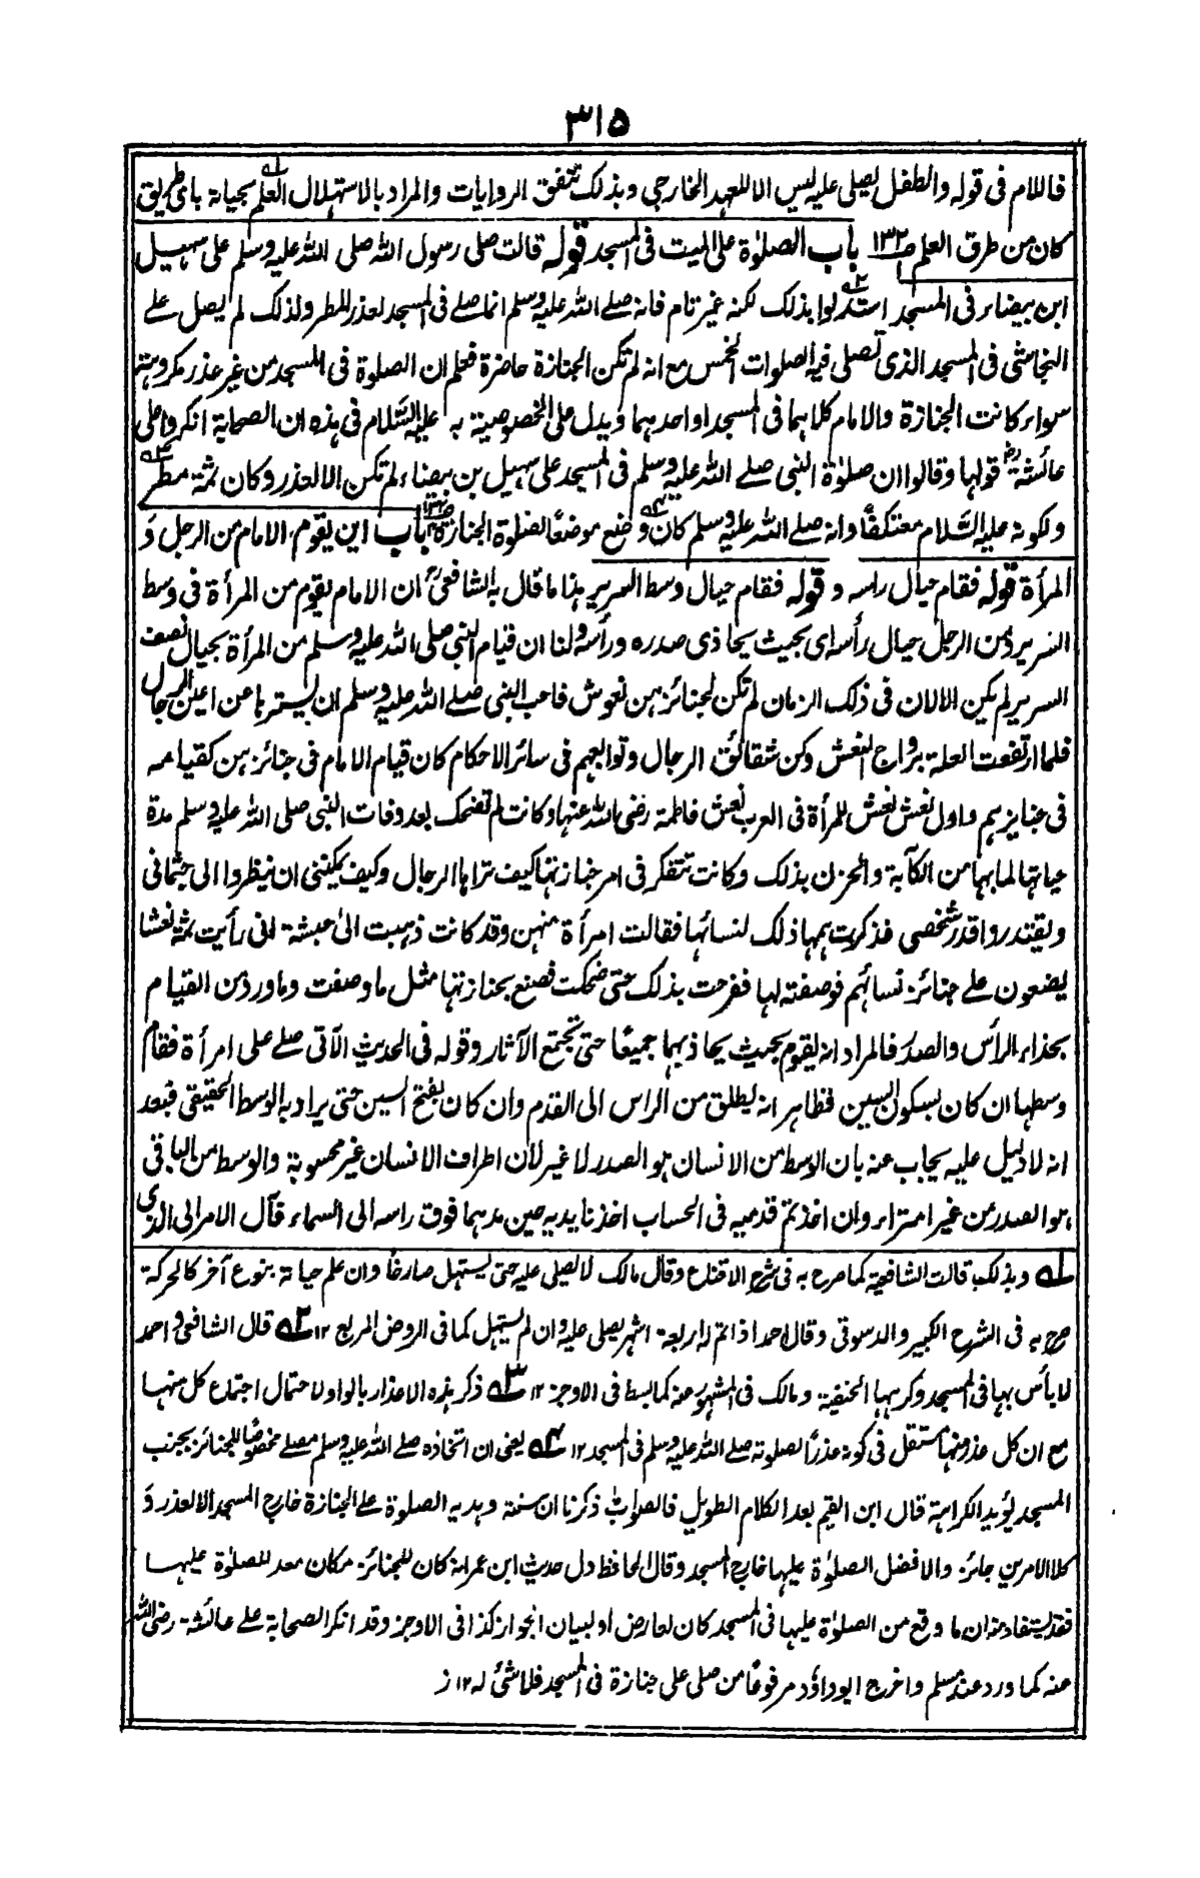 ٣١٥
فاللام فى قوله والطفل يصلى عليه ليس الا للعهد الخارجى وبذلك تتفق الروايات والمراد بالاستهلال العلم بحياته باى طريق
كان من طرق العلم ص١٣٢ باب الصلوٰة على الميت فى المسجد قوله قالت صلى رسول الله صلى الله عليه وسلم على سهيل
ابن بيضاء فى المسجد استدلوا بذلك لكنه غير تام فانه صلے الله عليه وسلم انما صلے فى المسجد لعذر للمطر ولذلك لم يصل علے
النجاشى فى المسجد الذى تصلى فيه الصلوات الخمس مع انه لم تكن الجنازة حاضرة فعلم ان الصلوة فى المسجد من غير عذر مكروهة
سواء كانت الجنازة والامام كلاهما فى المسجد او احدهما ويدل على الخصوصية به عليه السَّلام فى هذه ان الصحابة انكروا على
عائشةؓ قولها وقالوا ان صلوٰة النبى صلے الله عليه وسلم فى المسجد على سهيل بن بيضاء لم تكن الا لعذر وكان ثمة مطر٣ه
ولكونه عليه السَّلام معتكفًا وانه صلے الله عليه وسلم كان وضع موضعًا لصلوة الجنازة باب اين يقوم الامام من الرجل وَ
المرأة قوله فقام حيال راسه و قوله فقام حيال وسط السرير هذا ما قال به الشافعىؒ ان الامام يقوم من المرأة فى وسط
السرير ومن الرجل حيال رأسه اى بحيث يحاذى صدره ورأسه ولنا ان قيام النبى صلى الله عليه وسلم من المرأة بحيال نصف
السرير لم يكن الا لان فى ذلك الزمان لم تكن لجنائزهن نعوش فاحب النبى صلے الله عليه وسلم ان يسترها عن اعين الرجال
فلما ارتفعت العلة برواج النعش وكن شقائق الرجال وتوابعهم فى سائر الاحكام كان قيام الامام فى جنائزهن كقيامه
فى جنايزهم واول نعش نعش للمرأة فى العرب نعش فاطمة رضى الله عنها وكانت لم تضحك بعد وفات النبى صلى الله عليه وسلم مدة
حياتها لما بها من الكآبة والحزن بذلك وكانت تتفكر فى امر جنازتها كيف تراها الرجال وكيف يمكننى ان ينظروا الى جثمانى
ويقتدروا قدر شخصى فذكرت بهما ذلك لنسائها فقالت امرأة منهن وقد كانت ذهبت الىٰ حبشة انى رأيت ثمة نعشا
يضعون علے جنائز نسائهم فوصفته لها ففرحت بذلك حتى ضحكت فصنع بجنازتها مثل ما وصفت وما ورد من القيام
بحذاء الرأس والصدر فالمراد انه يقوم بحيث يحاذيهما جميعًا حتى تجتمع الآثار وقوله فى الحديث الآتى صلے على امرأة فقام
وسطها ان كان بسكون السين فظاهر انه يطلق من الراس الى القدم وان كان بفتح السين حتى يراد به الوسط الحقيقى فبعد
انه لا دليل عليه يجاب عنه بان الوسط من الانسان هو الصدر لا غير لان اطراف الانسان غير محسوبة والوسط من الباقى
هو الصدر من غير امتراء وان اخذتم قدميه فى الحساب اخذنا يديه حين مدهما فوق راسه الى السماء فآل الامر الى الذى
١ه وبذلك قالت الشافعية كما صرح به فى شرح الاقناع وقال مالك لا يصلى عليه حتى يستهل صارخًا وان علم حياته بنوع آخر كالحركة
صرح به فى الشرح الكبير والدسوقى وقال احمد اذا تم له اربعة اشهر يصلى عليه وان لم يستهل كما فى الروض المربع ١٢ ٢ه قال الشافعى واحمد
لا بأس بها فى المسجد وكرهها الحنفية ومالك فى المشهور عنه كما بسط فى الاوجز ١٢ ٣ه ذكر هذه الاعذار بالواو لاحتمال اجتماع كل منها
مع ان كل عذر منها مستقل فى كونه عذرًا لصلوته صلے الله عليه وسلم فى المسجد ١٢ ٤ه يعنى ان اتخاذه صلے الله عليه وسلم مصلے مخصوصًا للجنائز بجنب
المسجد يؤيد الكراهة قال ابن القيم بعد الكلام الطويل فالصواب ذكرنا ان سنته وهديه الصلوة علے الجنازة خارج المسجد الا لعذر وَ
كلا الامرين جائز والافضل الصلوٰة عليها خارج المسجد وقال الحافظ دل حديث ابن عمر انه كان للجنائز مكان معد للصلوٰة عليها
فقد يستفاد منه ان ما وقع من الصلوٰة عليها فى المسجد كان لعارض او لبيان الجواز كذا فى الاوجز وقد انكر الصحابة علے عائشة رضى الله
عنه كما ورد عند مسلم واخرج ابو داؤد مرفوعًا من صلى على جنازة فى المسجد فلا شئ له ١٢ ز